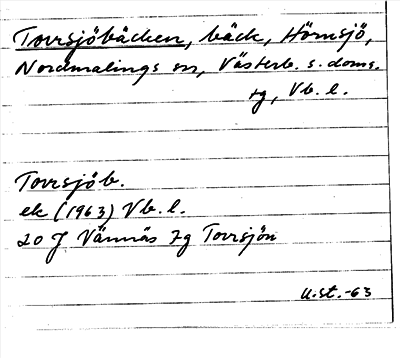 Torrsjöbäcken, bäck, Hörnsjö,
Nordmalings sn, Västerb. s. doms.
tg, Vb. l.
Torrsjöb.
ek (1963) Vb. l.
20 J Vännäs 7g Torrsjön
U.st.-63